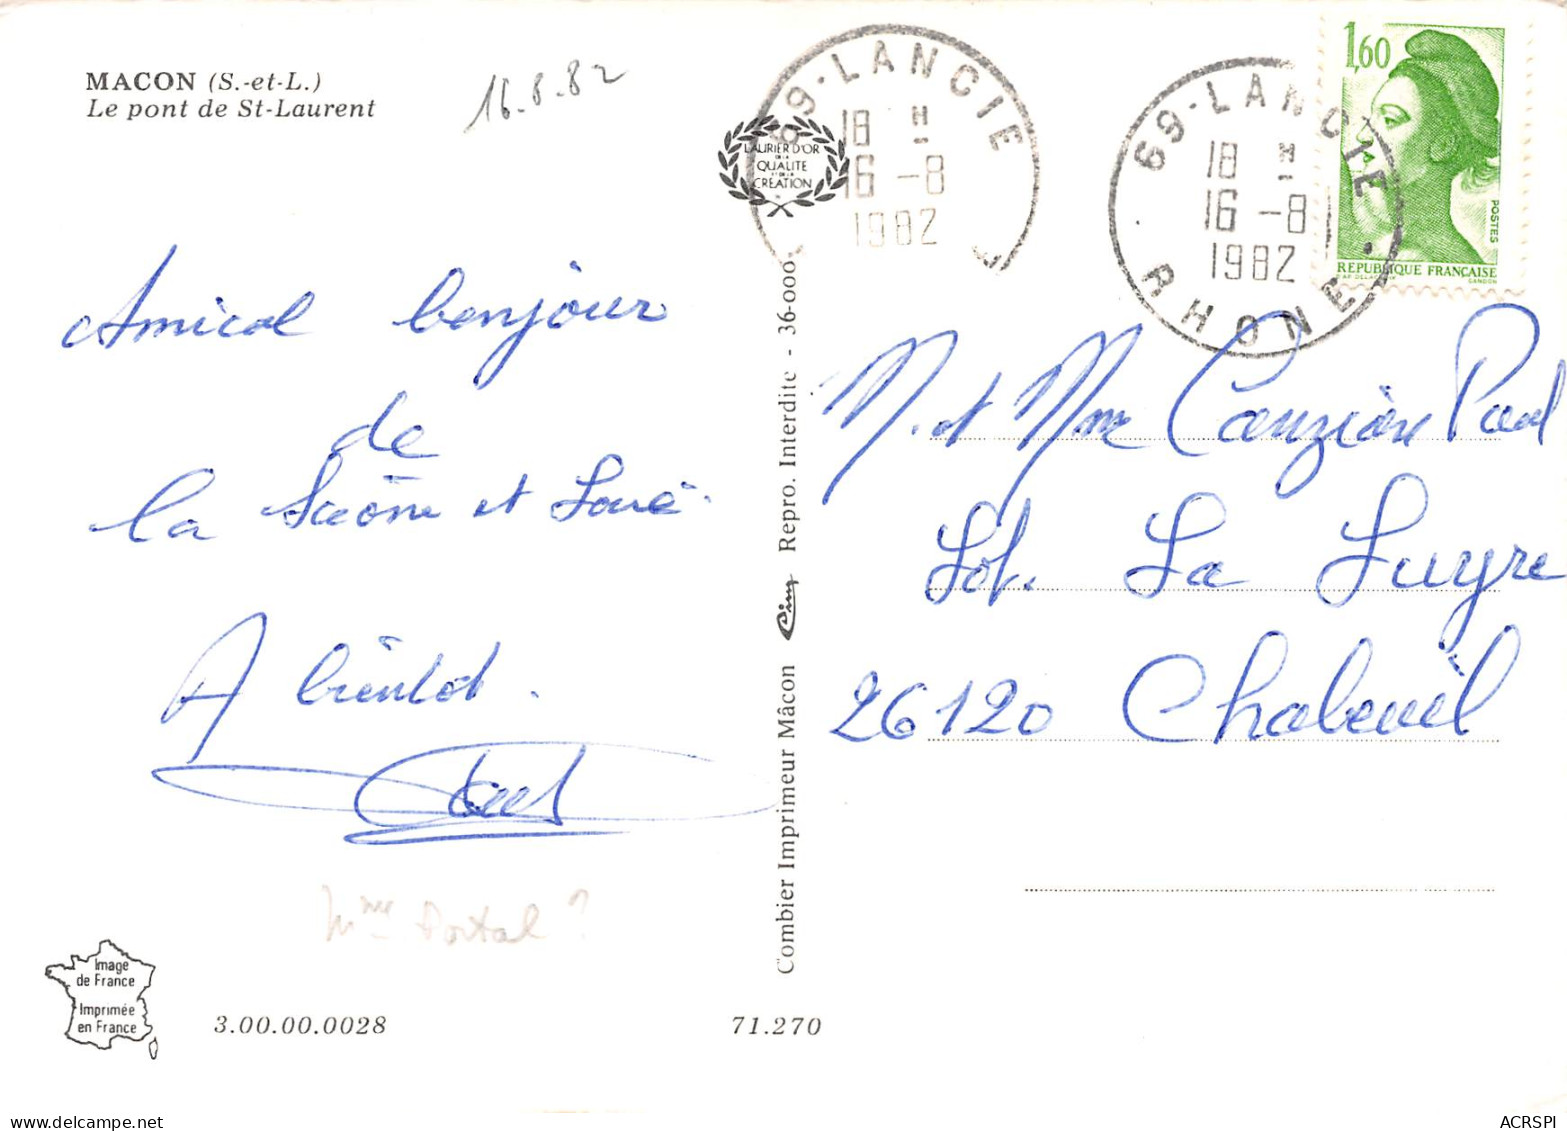 MACON (S.-et-L.)
Le pont de St-Laurent
16.8.82
Amical bonjour
de
la Saône et Loire.
A bientot.
Mme Portal ?
Image
de France
Imprimée
en France
3.00.00.0028
71.270
LAURIER D'OR
DE LA
QUALITE
ET DE LA
CREATION
Combier Imprimeur Mâcon Cim Repro. Interdite - 36-000
69-LANCIE
18 H
16 -8
1982
69-LANCIE
18 H
16 -8
1982
RHONE
1,60
POSTES
REPUBLIQUE FRANÇAISE
D'AP. DELACROIX
GANDON
M. et Mme Paul
Lot. La Luyre
26120 Chabeuil
ACRSPI